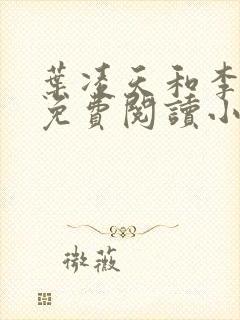 葉凌天和李
免費閱讀小
微薇